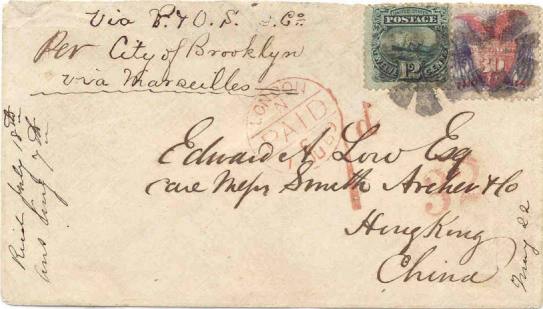 Via P. & O. S. S. Co.
Per City of Brooklyn
via Marseilles
POSTAGE
12
30
LONDON
PAID
Edward A Low Esq
care Messrs Smith Archer & Co
32
HongKong
China
Recd July 18th
ans Aug 7th
May 22